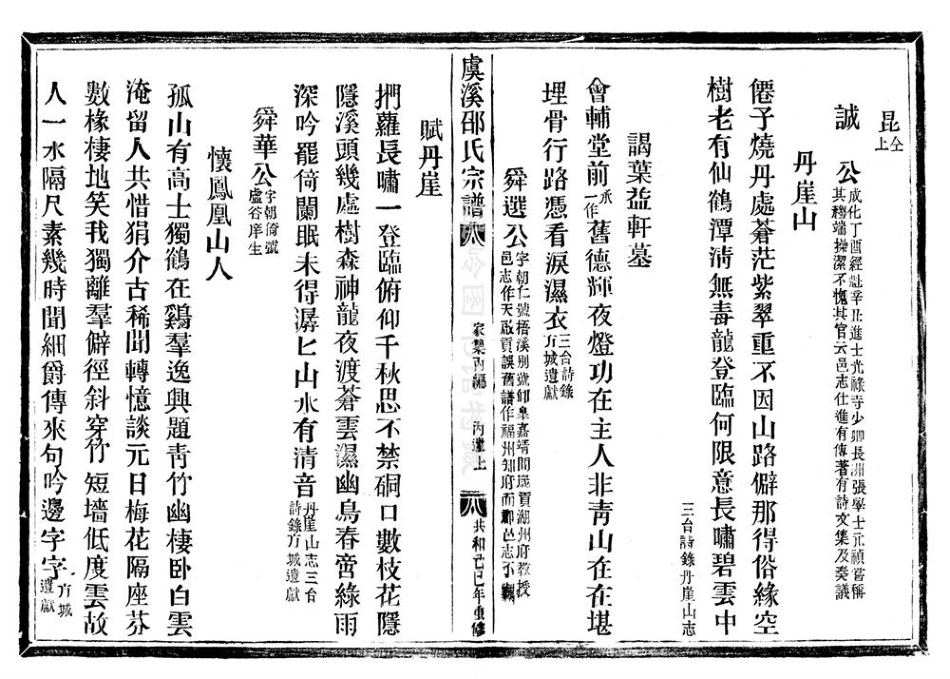 昆仝上
誠　公成化丁酉經魁辛丑進士光祿寺少卿長洲張學士元禎嘗稱其穆端操潔不愧其官云邑志仕進有傳著有詩文集及奏議
丹崖山
僊子燒丹處蒼茫紫翠重不因山路僻那得俗緣空
樹老有仙鶴潭淸無毒龍登臨何限意長嘯碧雲中三台詩錄丹崖山志
謁葉益軒墓
會輔堂前一作承舊德輝夜燈功在主人非靑山在在堪
埋骨行路憑看淚濕衣三台詩錄方城遺獻
舜選公字朝仁號梧溪別號卸皐嘉靖間選貢湖州府敎授邑志作天啟貢誤舊譜作福州知府而郡邑志不載
虞溪邵氏宗譜　家集內編　內選上　共和己巳年重修
賦丹崖
捫蘿長嘯一登臨俯仰千秋思不禁硐口數枝花隱
隱溪頭幾處樹森神龍夜渡蒼雲濕幽鳥春啼綠雨
深吟罷倚闌眠未得潺匕山水有淸音丹崖山志三台詩錄方城遺獻
舜華公字朝倚號虛谷庠生
懷鳳凰山人
孤山有高士獨鶴在鷄羣逸興題靑竹幽棲卧白雲
淹留人共惜狷介古稀聞轉憶談元日梅花隔座芬
數椽棲地笑我獨離羣僻徑斜穿竹短墻低度雲故
人一水隔尺素幾時聞細爵傳來句吟邊字字方城遺獻